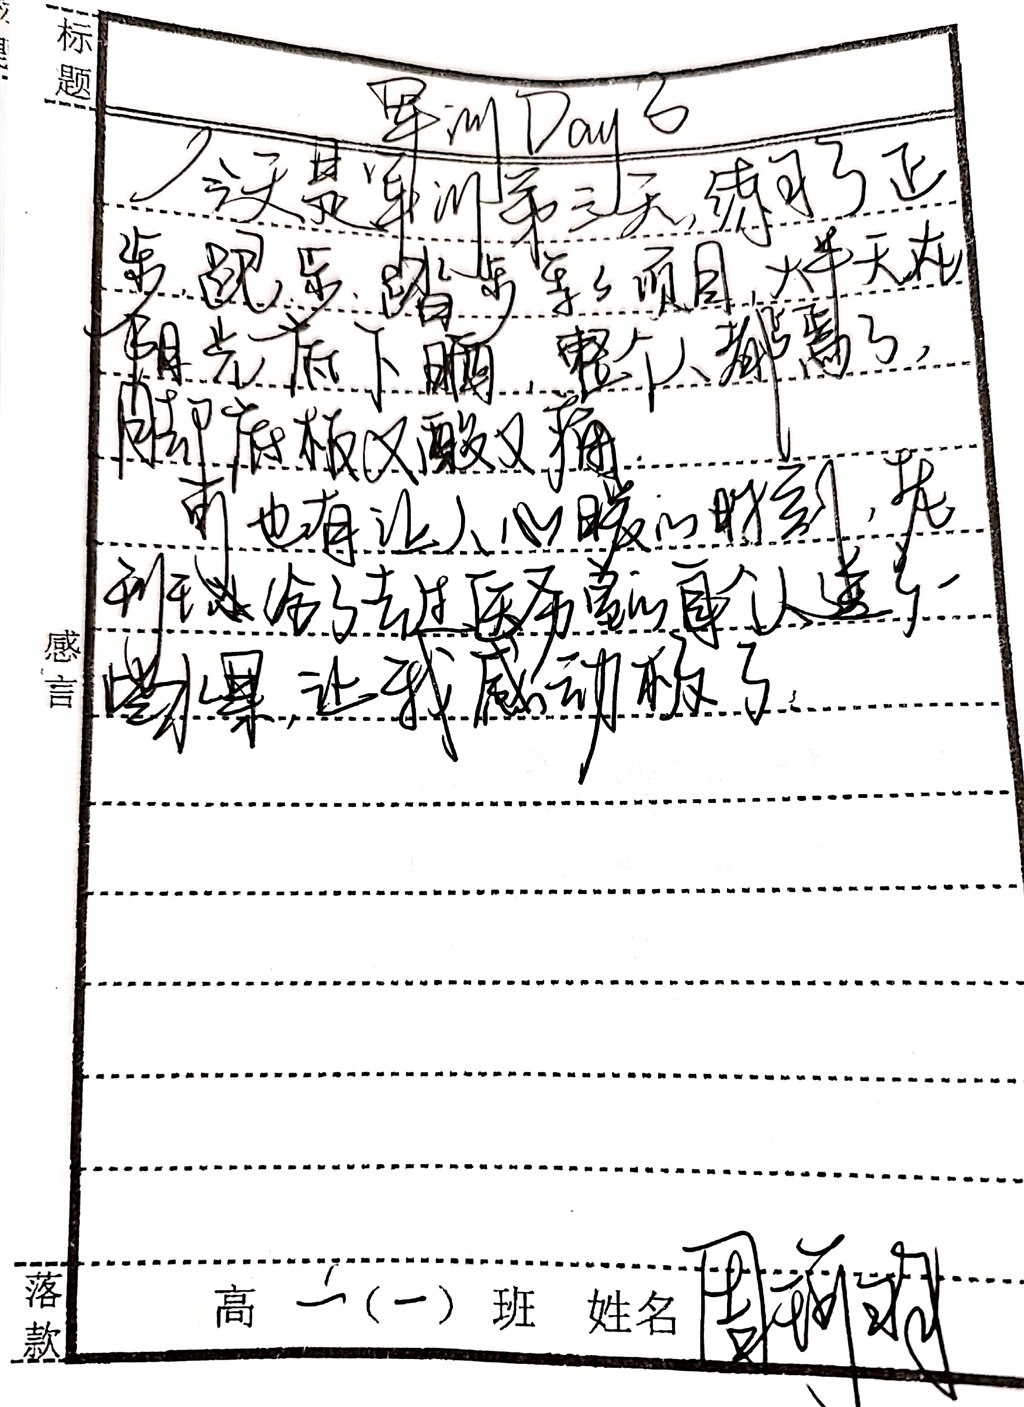 标题
军训Day3
今天是军训第三天,练习了正
步、跑步、踏步等多项目,大半天在
阳光底下晒,整个人都蔫了,
脚底板又酸又痛.
可也有让人心暖的时刻,
给了去过医务室的每个人送了一
些水果,让我感动极了.
感言
落款
高一(一)班 姓名 周